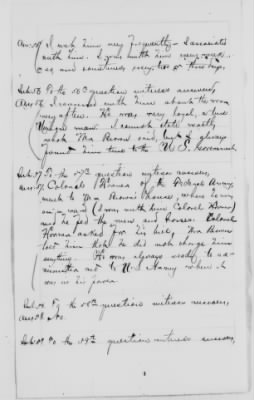 Ans. 15th I met him very frequently – I associated
with him. I was with him every week
or so and sometimes every two or three days.
To the 16th question witness answers,
Ans 16 I conversed with him about the war
very often. He was very loyal, a true
Union man. I cannot state exactly
what Mr Brown said but I always
found him true to the U.S. Government.
To the 17th question witness answers,
Ans. 17 Colonel of the Federal Army,
went to Mr Brown's house, when he was
in (I was with him Colonel
and he fed the men and horses. Colonel
asked for his bill, Mr Brown
told him that he did not charge him
anything. He was always ready to
to U.S. Army when it
was in his power.
To the 18th question witness answers,
Ans. 18 No.
To the 19th question witness answers,